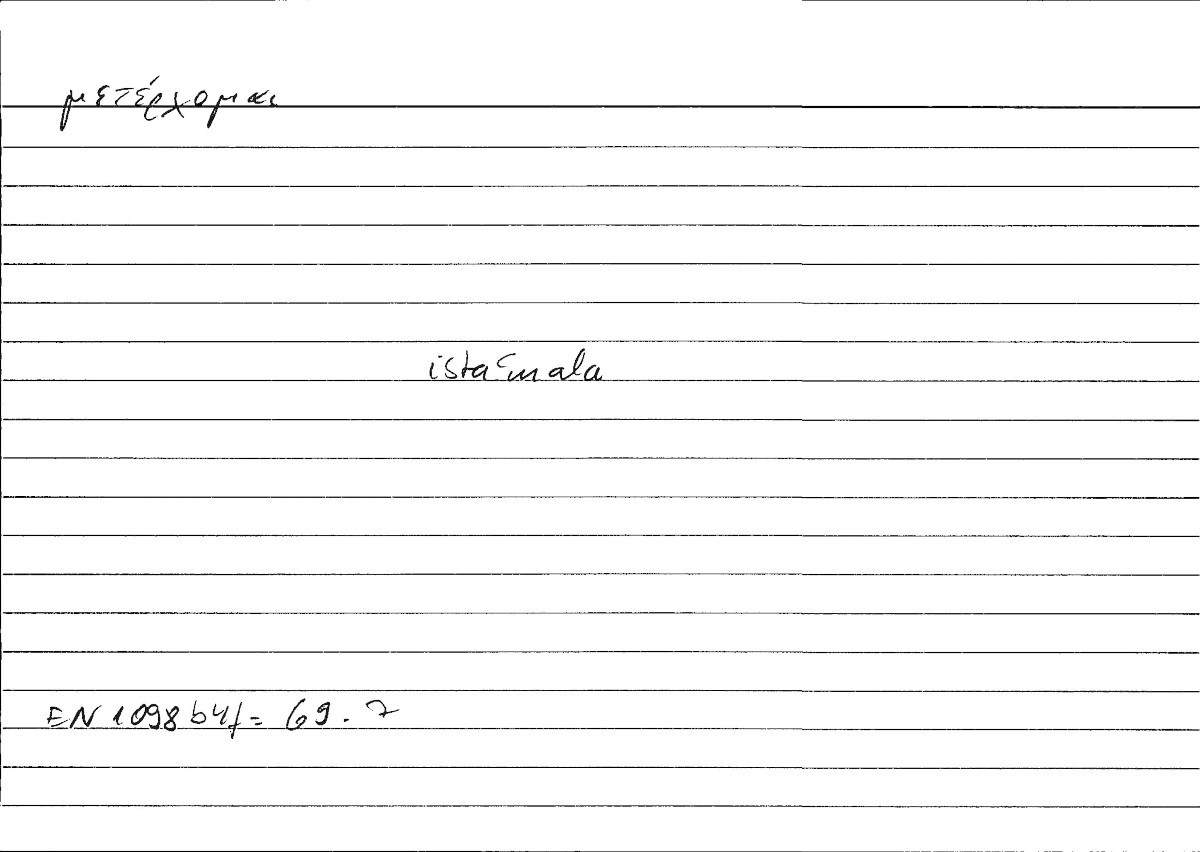 μετέρχομαι
istaʿmala
EN 1098b4f = 69.7